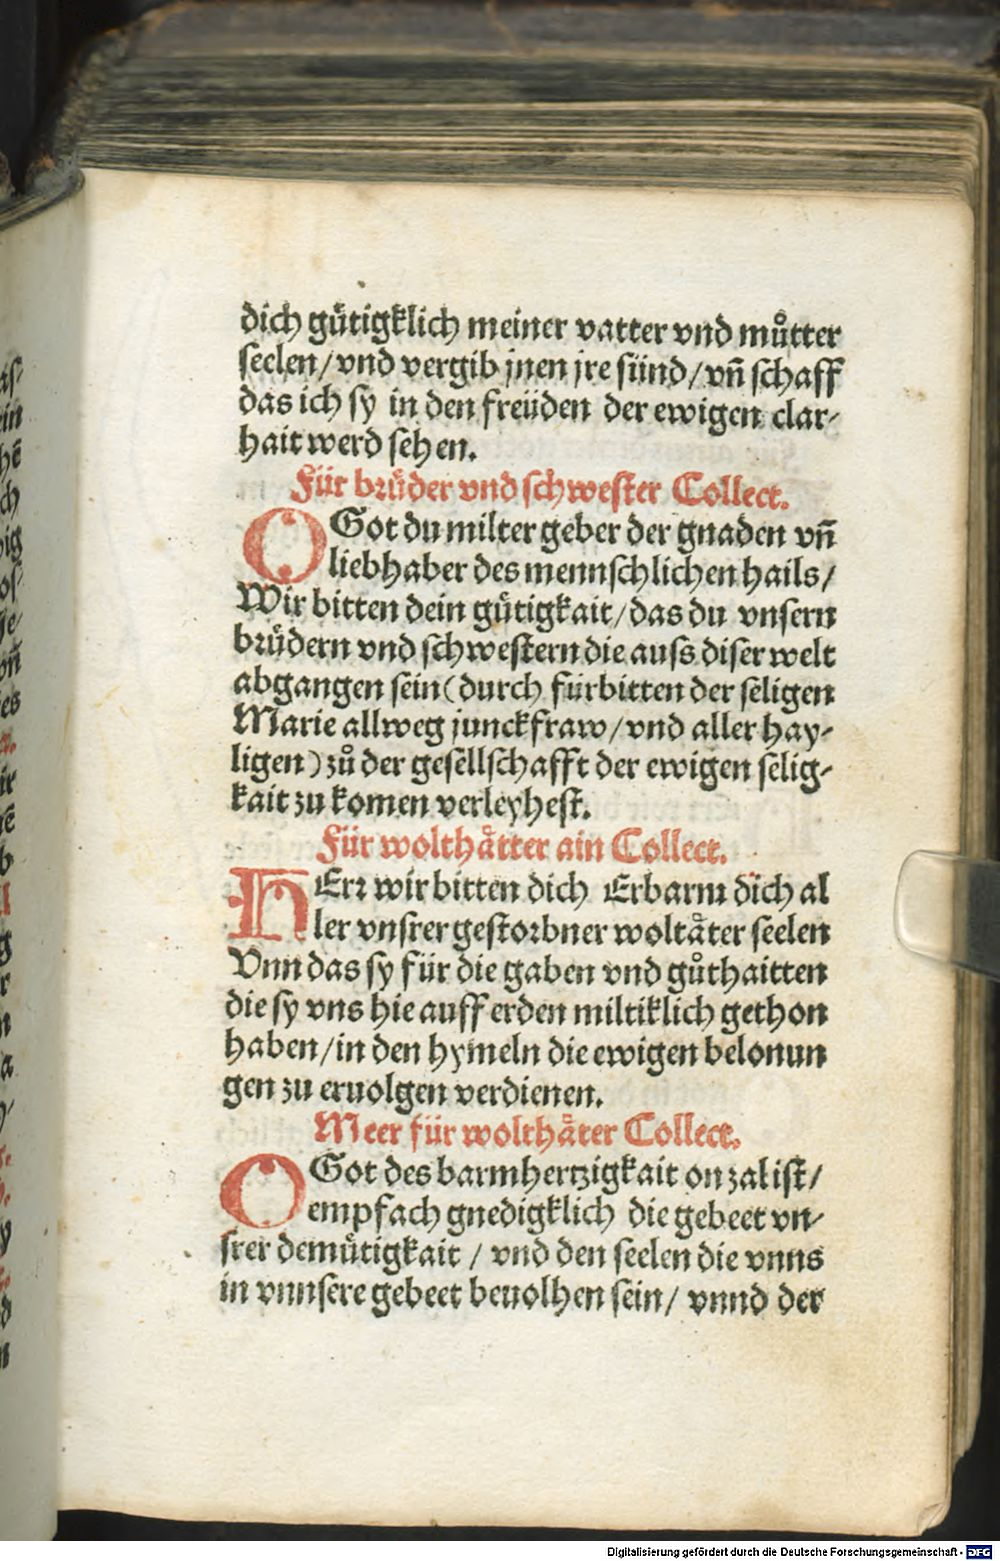 dich gütigklich meiner vatter vnd můtter
seelen/ vnd vergib jnen jre sünd/ vñ schaff
das ich sy in den freüden der ewigen clar-
hait werd sehen.
Für brüder vnd schwester Collect.
O Got du milter geber der gnaden vñ
liebhaber des mennschlichen hails/
Wir bitten dein gütigkait/ das du vnsern
brüdern vnd schwestern die auss diser welt
abgangen sein (durch fürbitten der seligen
Marie allweg junckfraw/ vnd aller hay-
ligen) zů der gesellschafft der ewigen selig-
kait zu komen verleyhest.
Für wolthåtter ain Collect.
HErr wir bitten dich Erbarm dich al
ler vnsrer gestorbner woltåter seelen
Vnn das sy für die gaben vnd gůthaitten
die sy vns hie auff erden miltiklich gethon
haben/ in den hymeln die ewigen belonun
gen zu eruolgen verdienen.
Meer für wolthåter Collect.
O Got des barmhertzigkait on zal ist/
empfach gnedigklich die gebeet vn-
srer demütigkait / vnd den seelen die vnns
in vnnsere gebeet beuolhen sein/ vnnd der
Digitalisierung gefördert durch die Deutsche Forschungsgemeinschaft - DFG